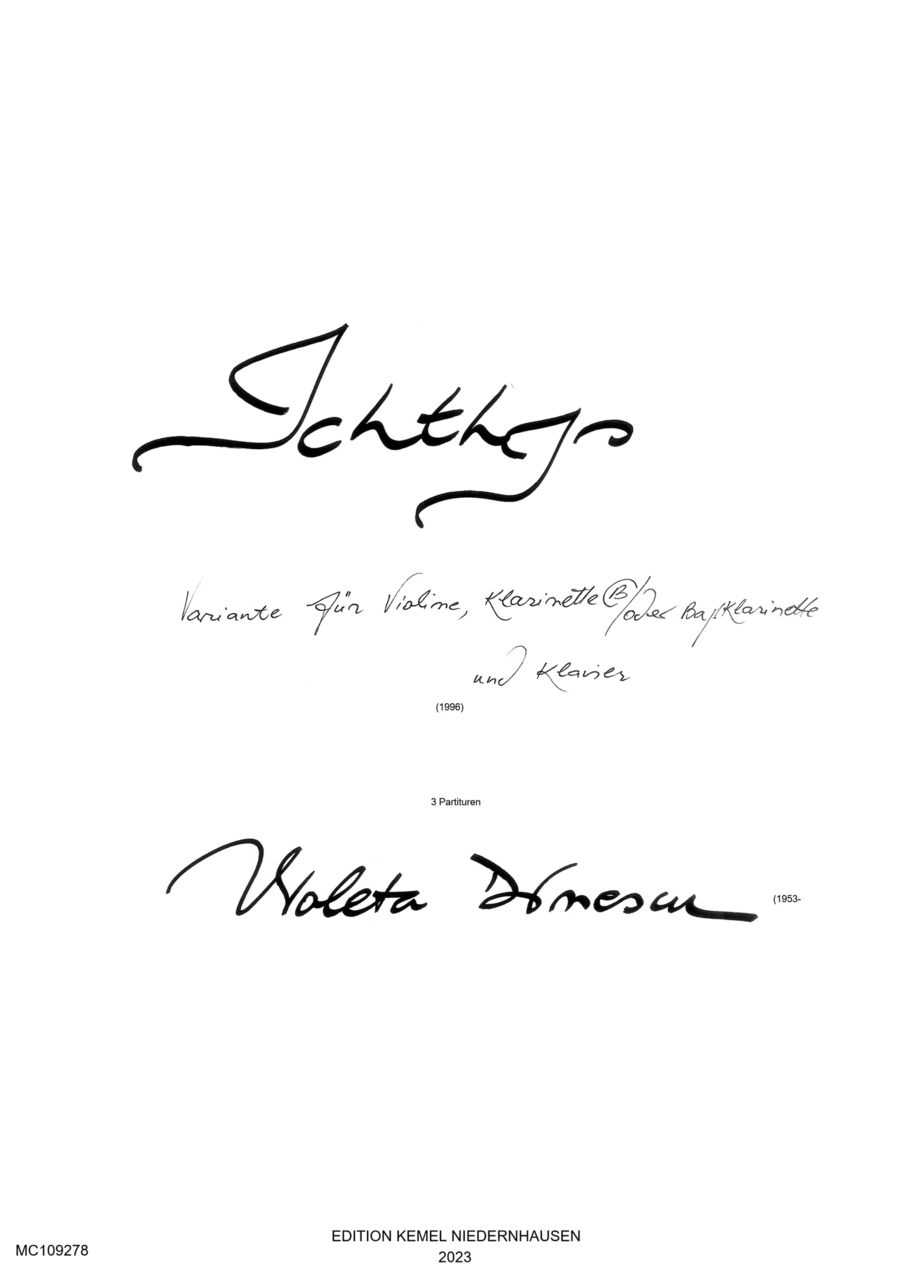 Ichthys
Variante für Violine, Klarinette (B)/oder Baßklarinette
und Klavier
(1996)
3 Partituren
Violeta Dinescu (1953-
EDITION KEMEL NIEDERNHAUSEN
MC109278
2023